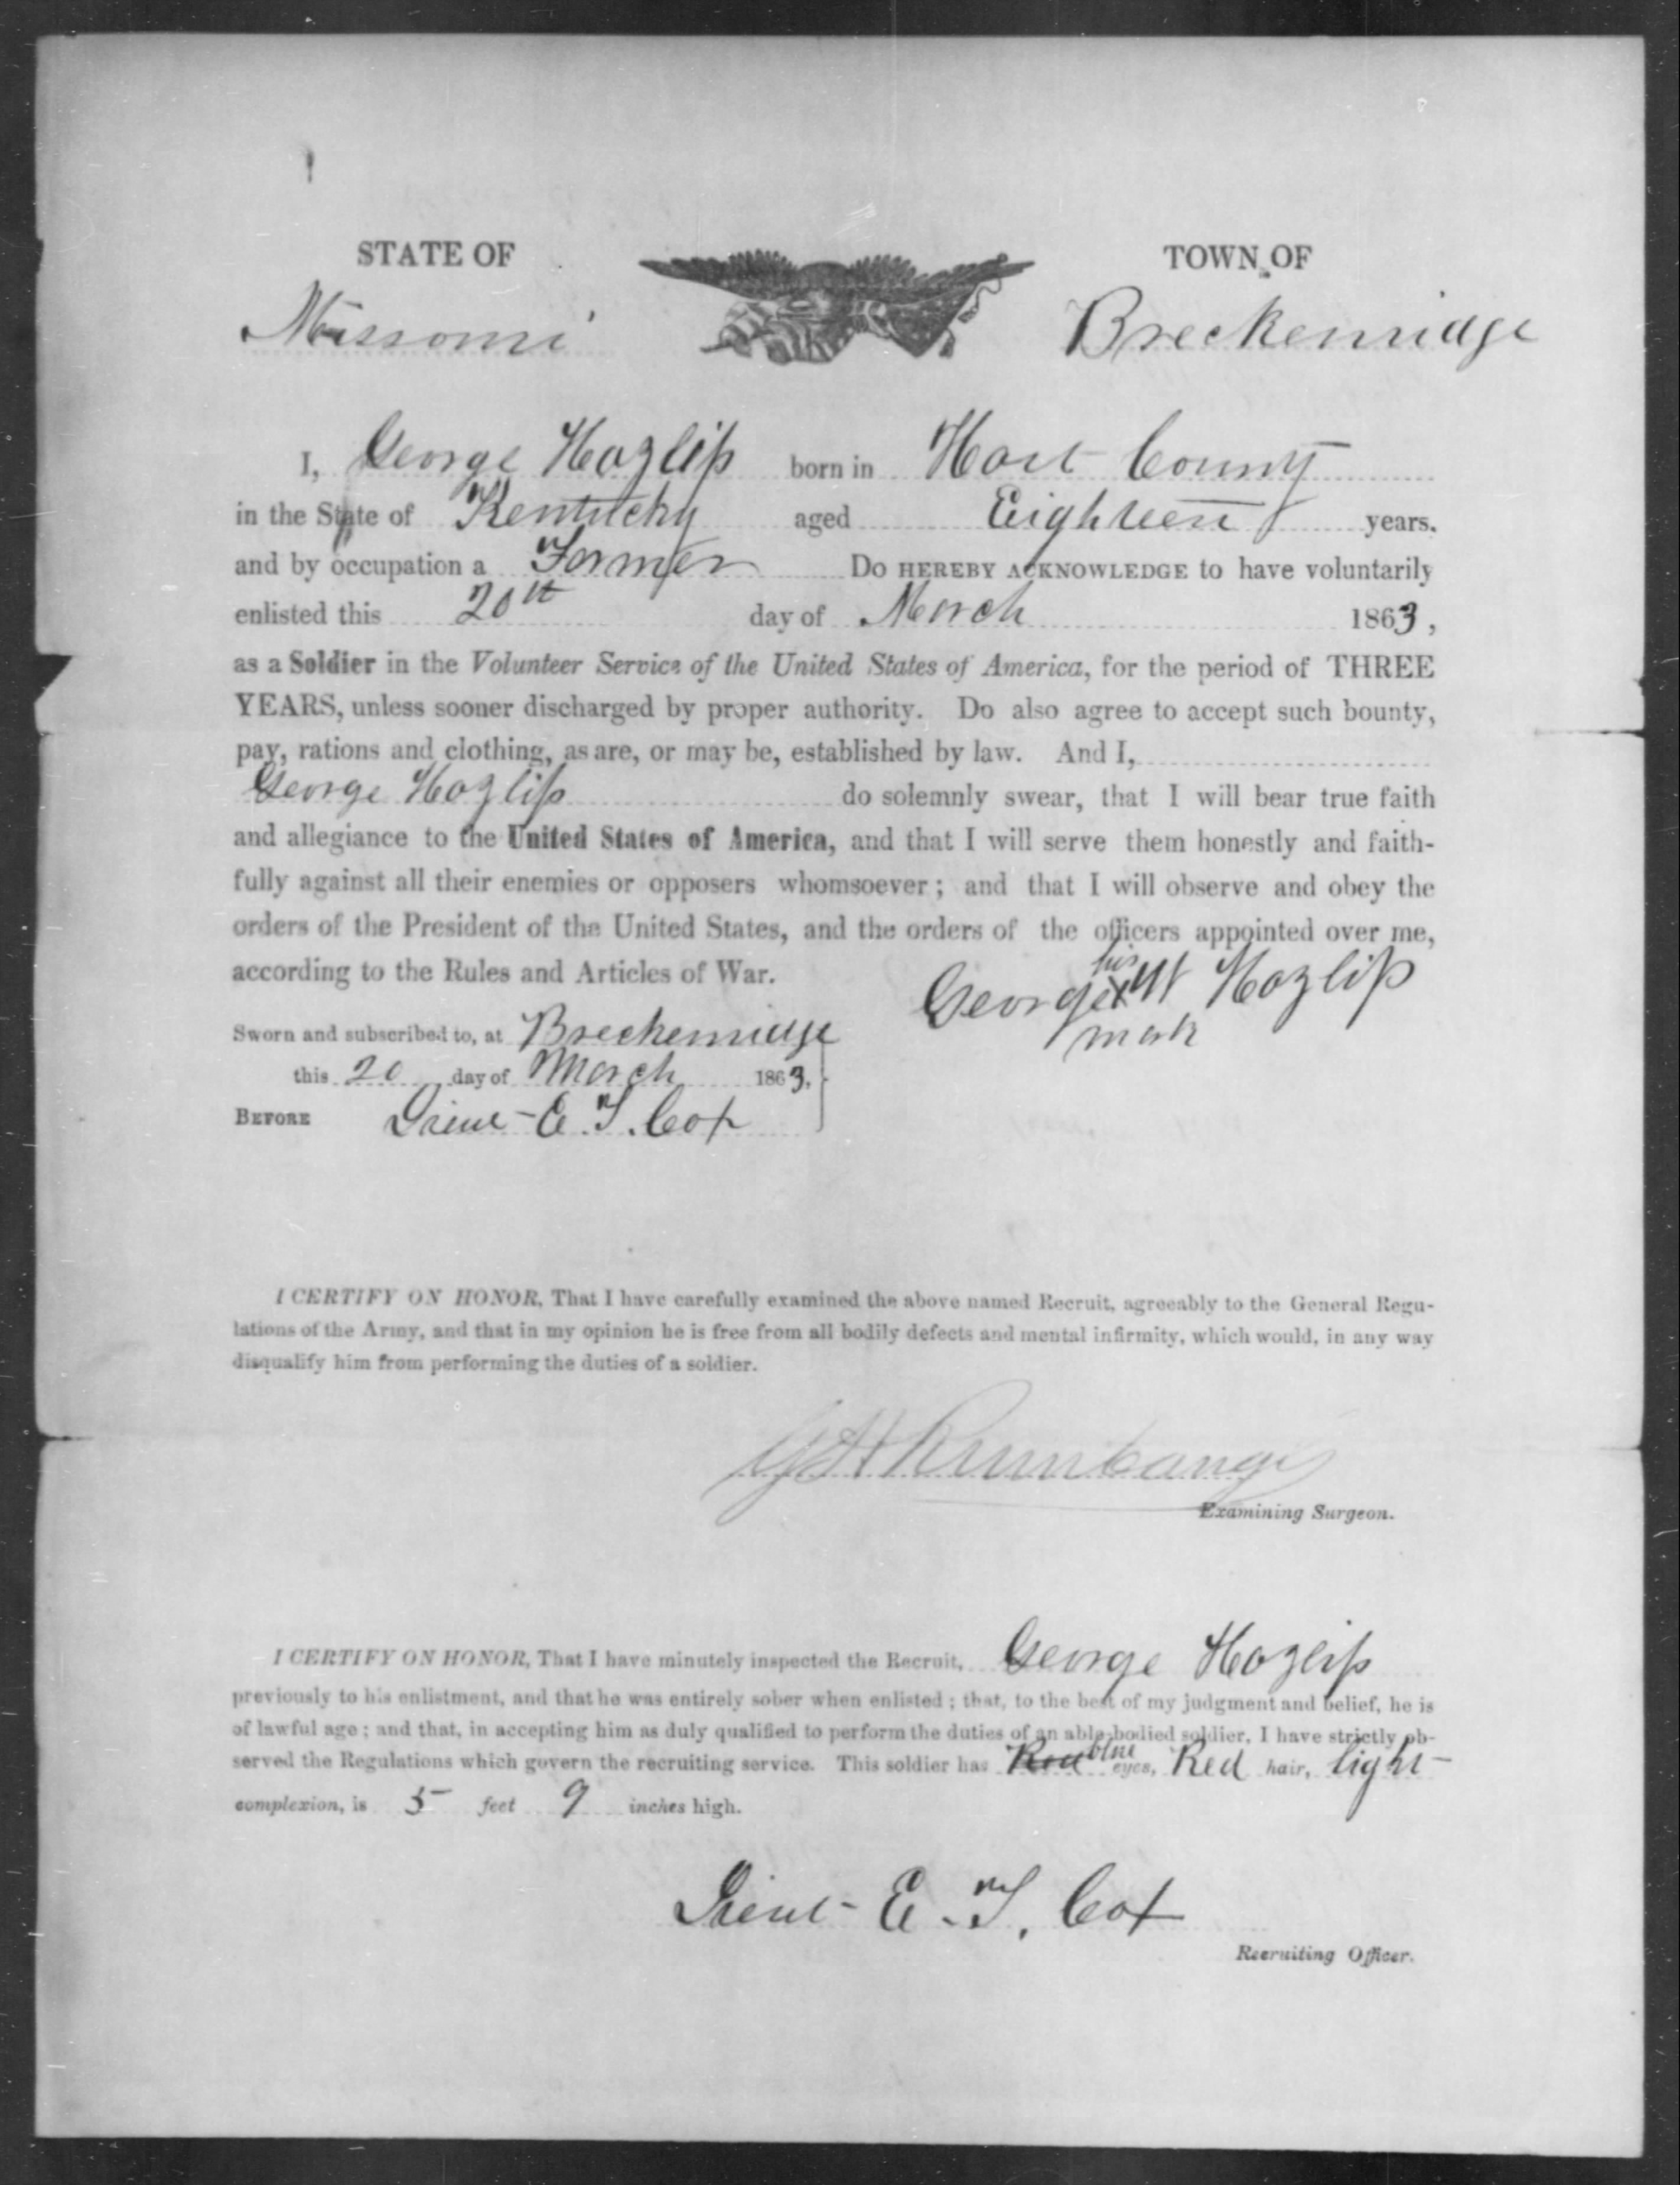 STATE OF
TOWN OF
Missouri
Breckenridge
I, George Hazlip born in Hart County
in the State of Kentucky aged Eighteen years,
and by occupation a Farmer Do HEREBY ACKNOWLEDGE to have voluntarily
enlisted this 20th day of March 1863,
as a Soldier in the Volunteer Service of the United States of America, for the period of THREE
YEARS, unless sooner discharged by proper authority. Do also agree to accept such bounty,
pay, rations and clothing, as are, or may be, established by law. And I,
George Hazlip do solemnly swear, that I will bear true faith
and allegiance to the United States of America, and that I will serve them honestly and faith-
fully against all their enemies or opposers whomsoever; and that I will observe and obey the
orders of the President of the United States, and the orders of the officers appointed over me,
according to the Rules and Articles of War.
his
George X W Hazlip
mark
Sworn and subscribed to, at Breckenridge
this 20 day of March 1863,
BEFORE Lieut E. T. Cox
I CERTIFY ON HONOR, That I have carefully examined the above named Recruit, agreeably to the General Regu-
lations of the Army, and that in my opinion he is free from all bodily defects and mental infirmity, which would, in any way
disqualify him from performing the duties of a soldier.
Examining Surgeon.
I CERTIFY ON HONOR, That I have minutely inspected the Recruit, George Hazlip
previously to his enlistment, and that he was entirely sober when enlisted; that, to the best of my judgment and belief, he is
of lawful age; and that, in accepting him as duly qualified to perform the duties of an able-bodied soldier, I have strictly ob-
served the Regulations which govern the recruiting service. This soldier has blue eyes, Red hair, light
complexion, is 5 feet 9 inches high.
Lieut E. T. Cox
Recruiting Officer.